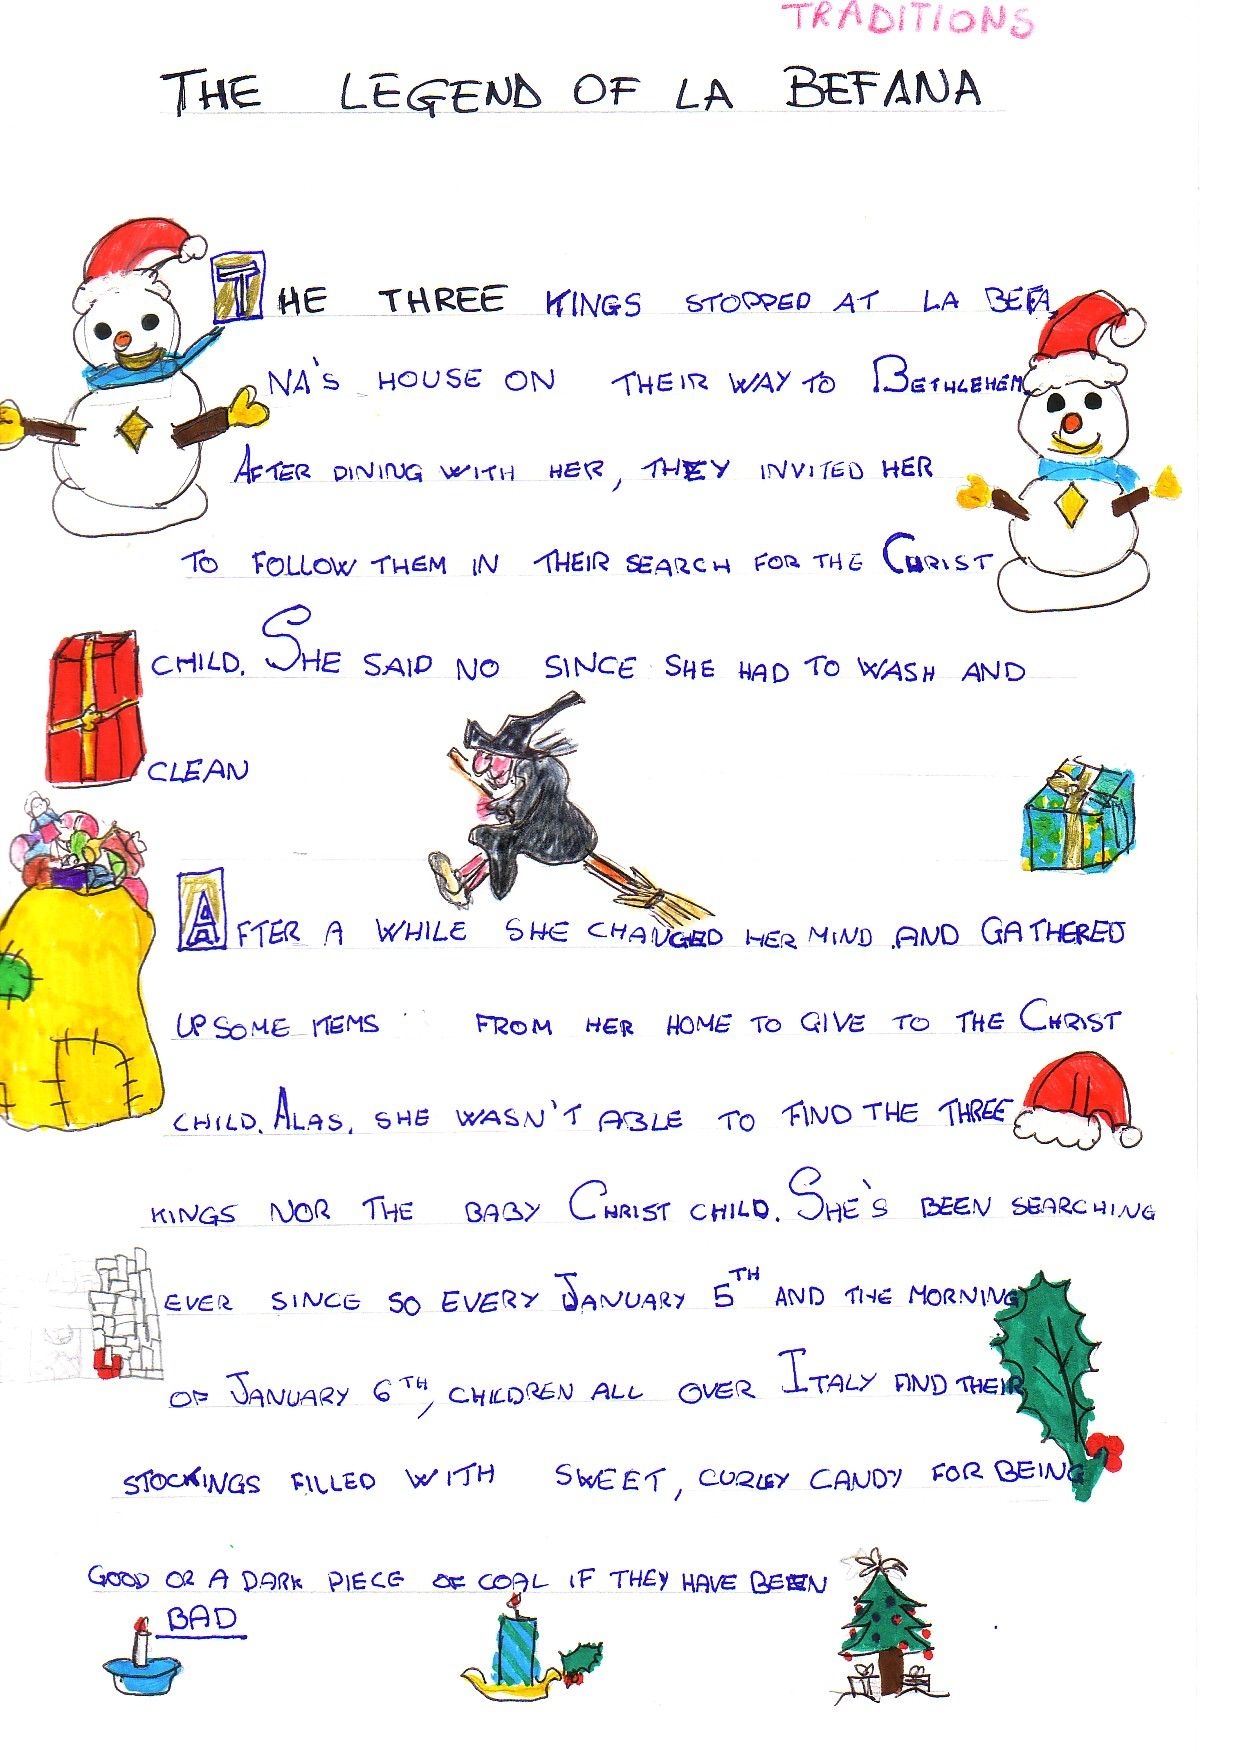 TRADITIONS
THE LEGEND OF LA BEFANA
THE THREE KINGS STOPPED AT LA BEFA
NA'S HOUSE ON THEIR WAY TO BETHLEHEM
AFTER DINING WITH HER, THEY INVITED HER
TO FOLLOW THEM IN THEIR SEARCH FOR THE CHRIST
CHILD. SHE SAID NO SINCE SHE HAD TO WASH AND
CLEAN
AFTER A WHILE SHE CHANGED HER MIND AND GATHERED
UP SOME ITEMS FROM HER HOME TO GIVE TO THE CHRIST
CHILD. ALAS, SHE WASN'T ABLE TO FIND THE THREE
KINGS NOR THE BABY CHRIST CHILD. SHE'S BEEN SEARCHING
EVER SINCE SO EVERY JANUARY 5TH AND THE MORNING
OF JANUARY 6TH, CHILDREN ALL OVER ITALY FIND THEIR
STOCKINGS FILLED WITH SWEET, CURLEY CANDY FOR BEING
GOOD OR A DARK PIECE OF COAL IF THEY HAVE BEEN
BAD